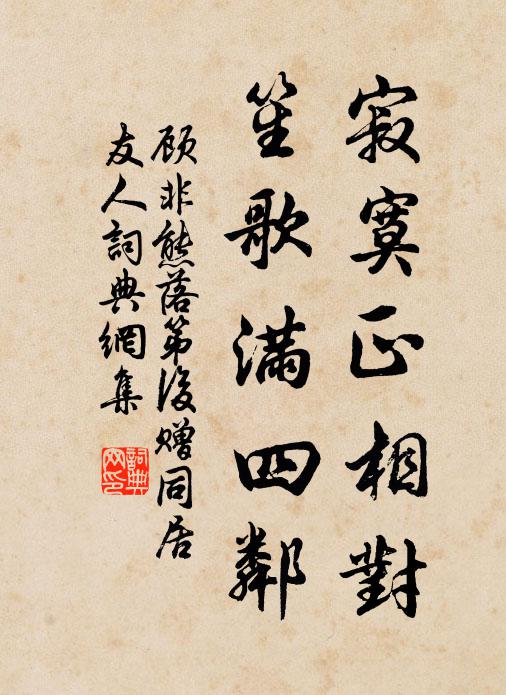 寂寞正相對
笙歌滿四鄰
顾非熊落第後赠同居
友人詞典網集
詞典
网印